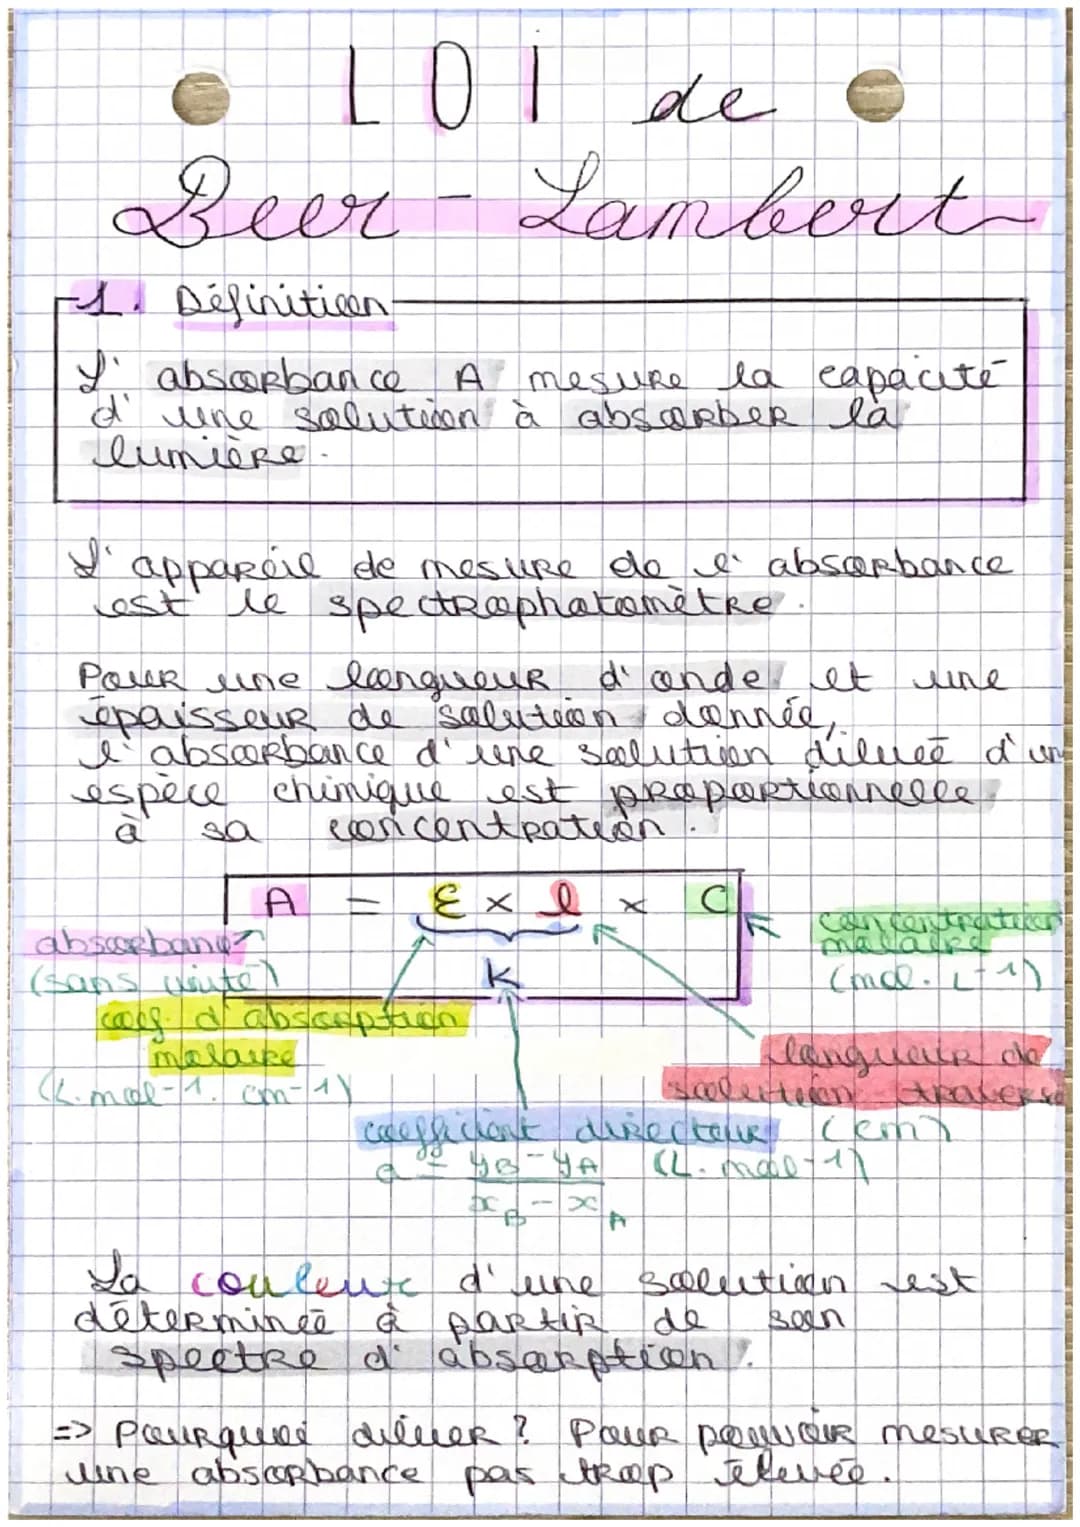 LOI de
Beer - Lambert
1. Définition
L'absorbance A mesure la capacité
d'une solution à absorber la
lumière.
L'appareil de mesure de l'absorbance
est le spectrophotomètre.
Pour une longueur d'onde et une
épaisseur de solution donnée,
l'absorbance d'une solution diluée d'un
espèce chimique est proportionnelle
à sa concentration.
A = ε × l × C
k
absorbance
(sans unité)
concentration
molaire
(mol. L-1)
coef. d'absorption
molaire
(L.mol-1. cm-1)
longueur de
solution traversé
(cm)
coefficient directeur
(L. mol-1)
a = yB - yA
xB - xA
La couleur d'une solution est
déterminée à partir de son
spectre d'absorption.
=> Pourquoi diluer ? Pour pouvoir mesurer
une absorbance pas trop élevée.